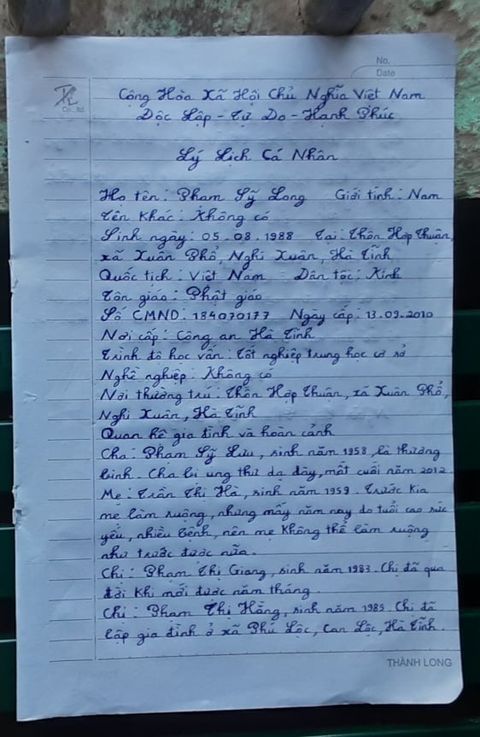 No.
Date
Cộng Hòa Xã Hội Chủ Nghĩa Việt Nam
Độc Lập - Tự Do - Hạnh Phúc
Lý Lịch Cá Nhân
Họ tên : Phạm Sỹ Long Giới tính : Nam
Tên Khác : Không có
Sinh ngày : 05 . 08 . 1988 Tại : Thôn Hợp Thuận,
xã Xuân Phổ, Nghi Xuân, Hà Tĩnh
Quốc tịch : Việt Nam Dân tộc : Kinh
Tôn giáo : Phật giáo
Số CMND : 184070177 Ngày cấp : 13.09.2010
Nơi cấp : Công an Hà Tĩnh
Trình độ học vấn : Tốt nghiệp trung học cơ sở
Nghề nghiệp : Không có
Nơi thường trú : Thôn Hợp Thuận, xã Xuân Phổ,
Nghi Xuân, Hà Tĩnh
Quan hệ gia đình và hoàn cảnh
Cha : Phạm Sỹ Lưu, sinh năm 1958, là thương
binh. Cha bị ung thư dạ dày, mất cuối năm 2012.
Mẹ : Trần Thị Hà, sinh năm 1959. Trước kia
mẹ làm ruộng, nhưng mấy năm nay do tuổi cao sức
yếu, nhiều bệnh, nên mẹ không thể làm ruộng
như trước được nữa.
Chị : Phạm Thị Giang, sinh năm 1983. Chị đã qua
đời khi mới được năm tháng.
Chị : Phạm Thị Hằng, sinh năm 1985. Chị đã
lập gia đình ở xã Phú Lộc, Can Lộc, Hà Tĩnh.
THÀNH LONG